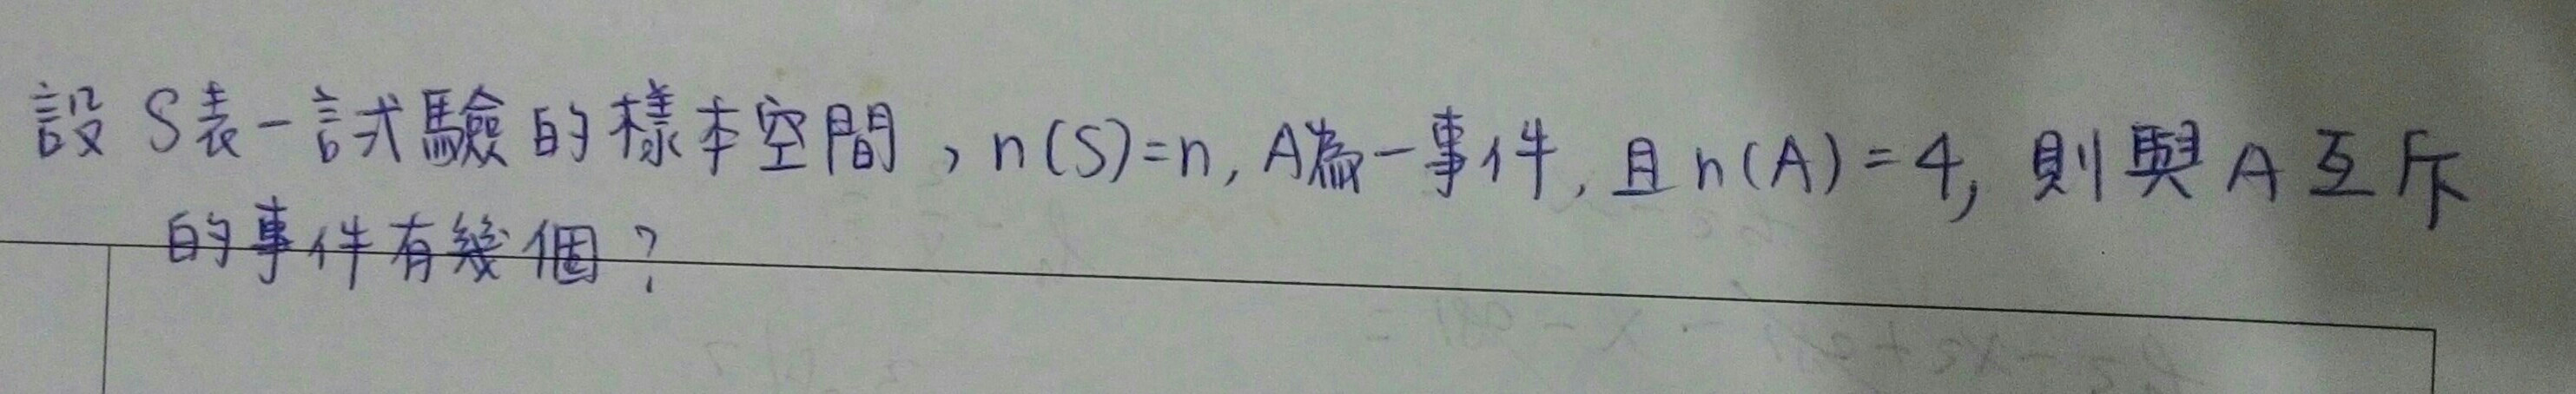 設 S表一試驗的樣本空間，n(S)=n, A為一事件, 且 n(A)=4, 則與A互斥
的事件有幾個?